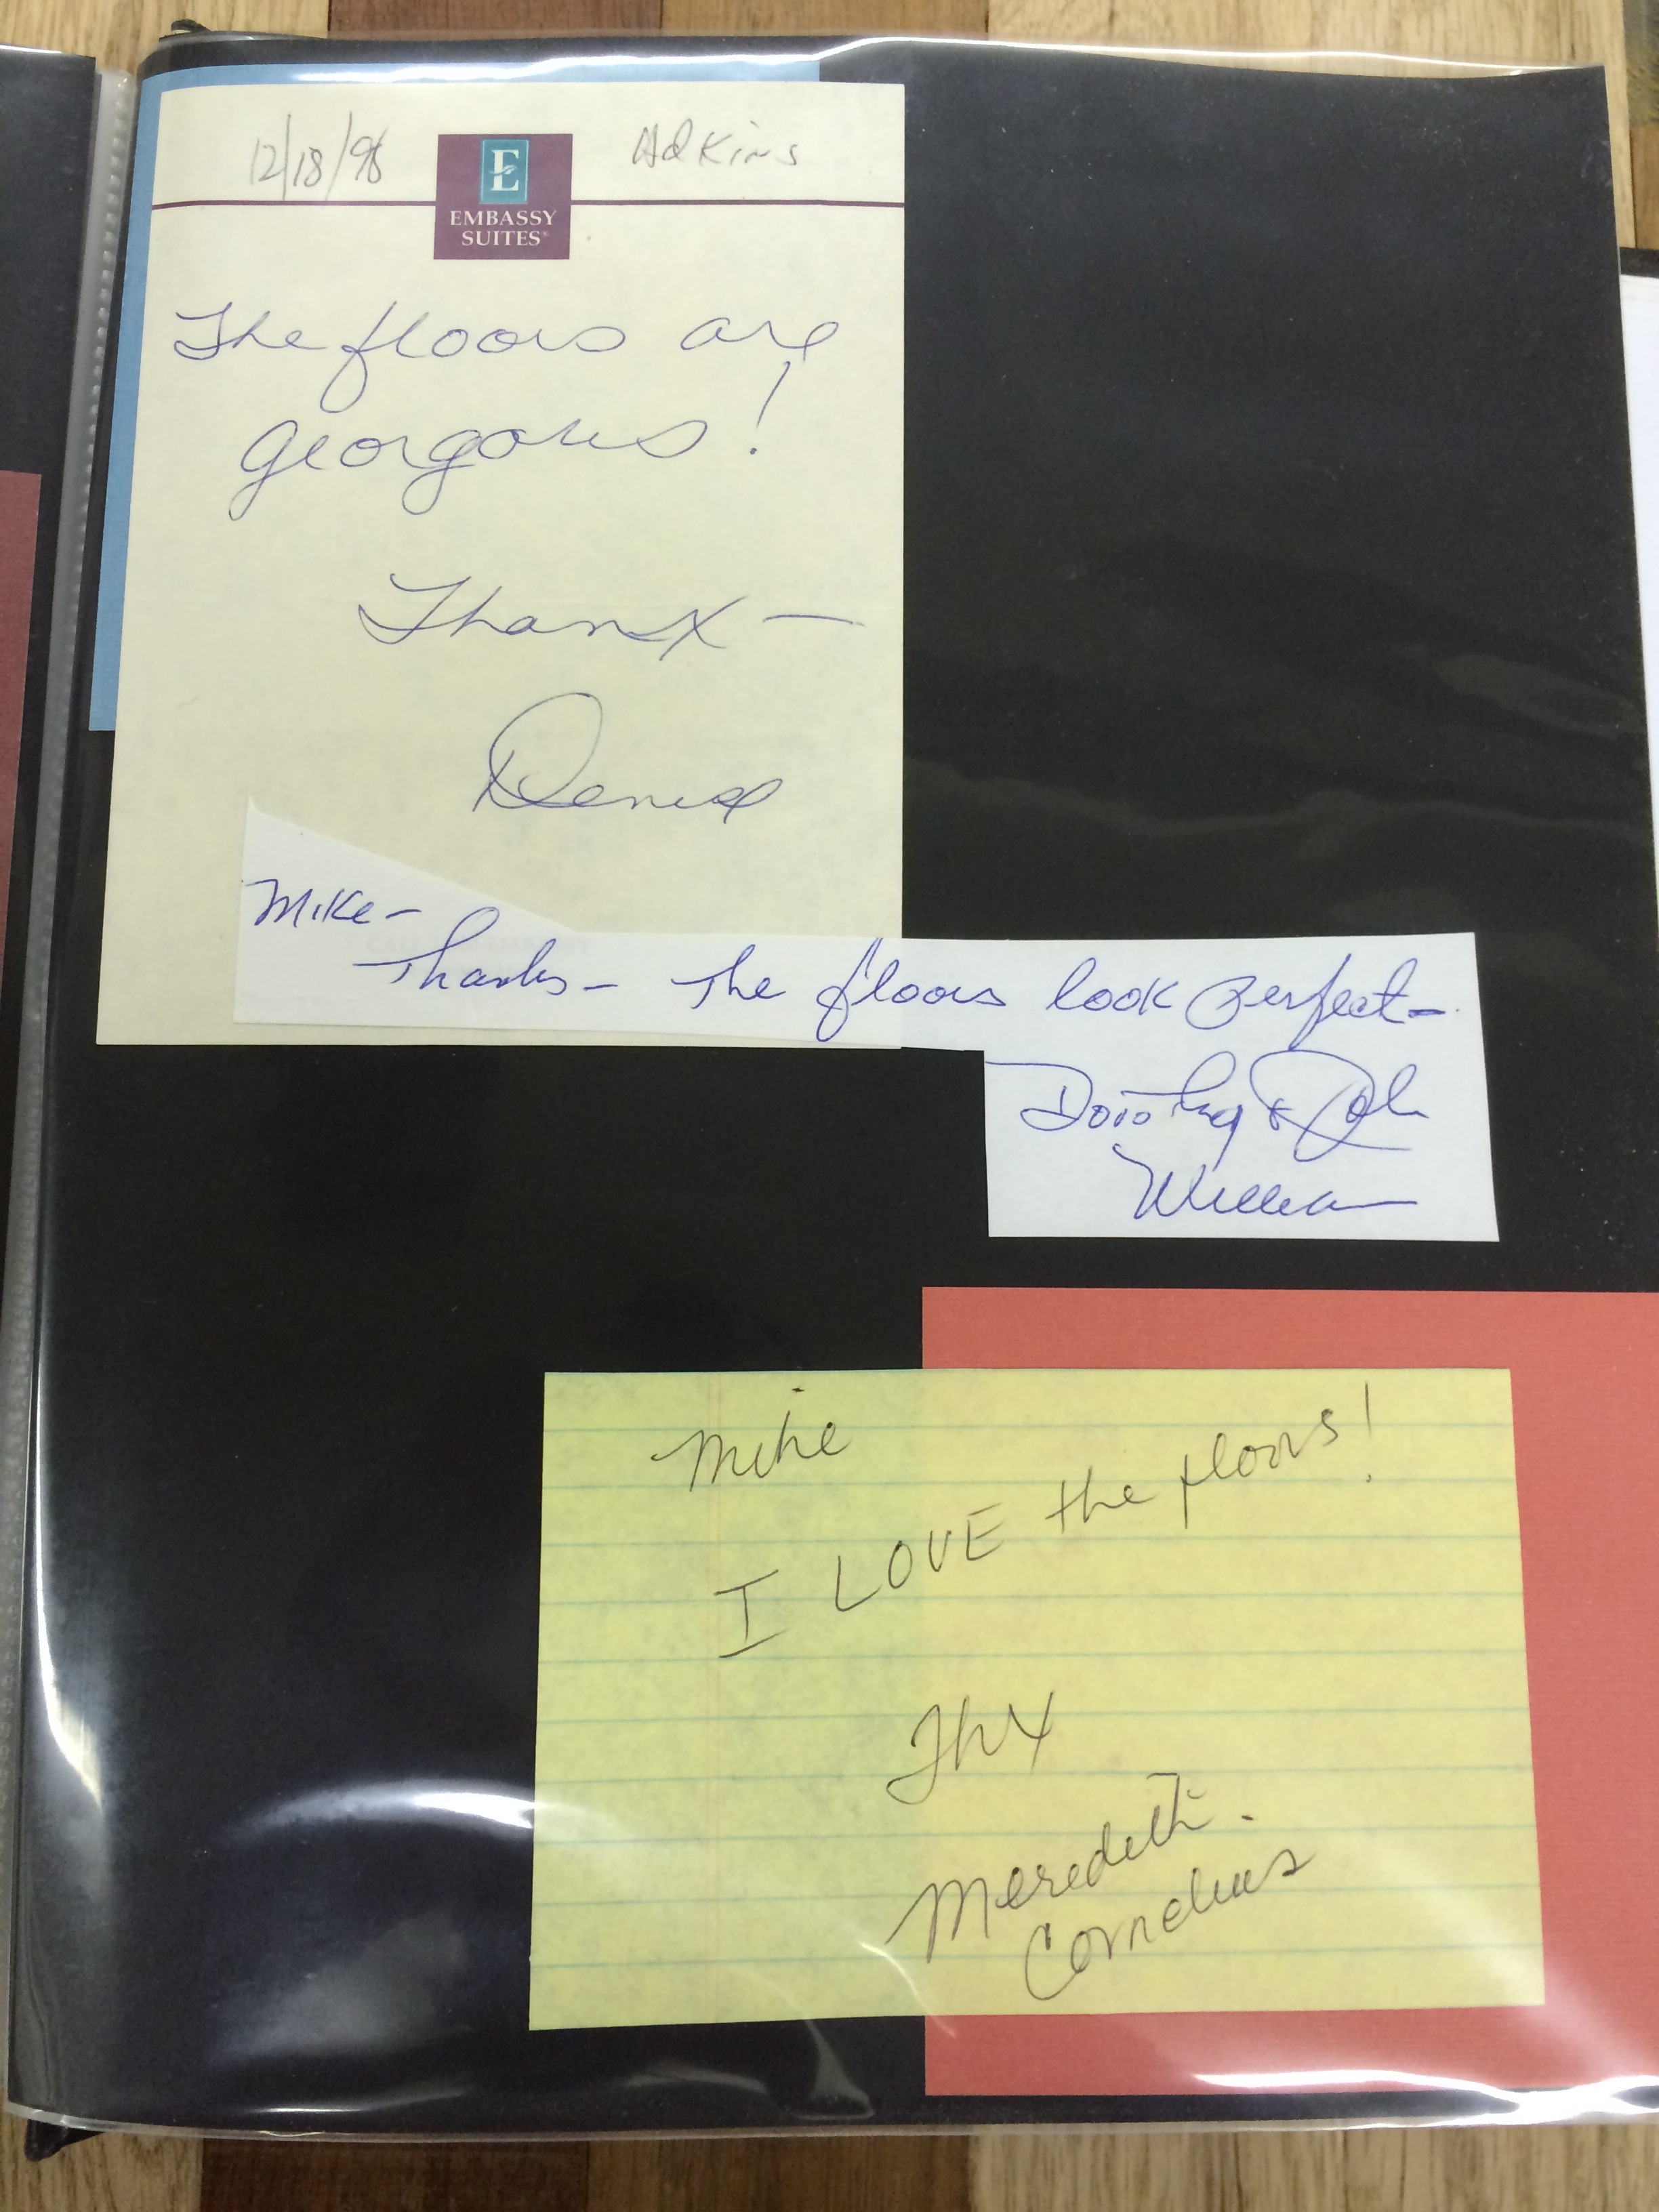 12/18/98 Adkins
E
EMBASSY
SUITES®
The floors are
georgous!
Thanx –
Denise
Mike –
Thanks – The floors look perfect –
Dorothy & John
Mike
I LOVE the floors!
Thx
Meredith
Cornelius